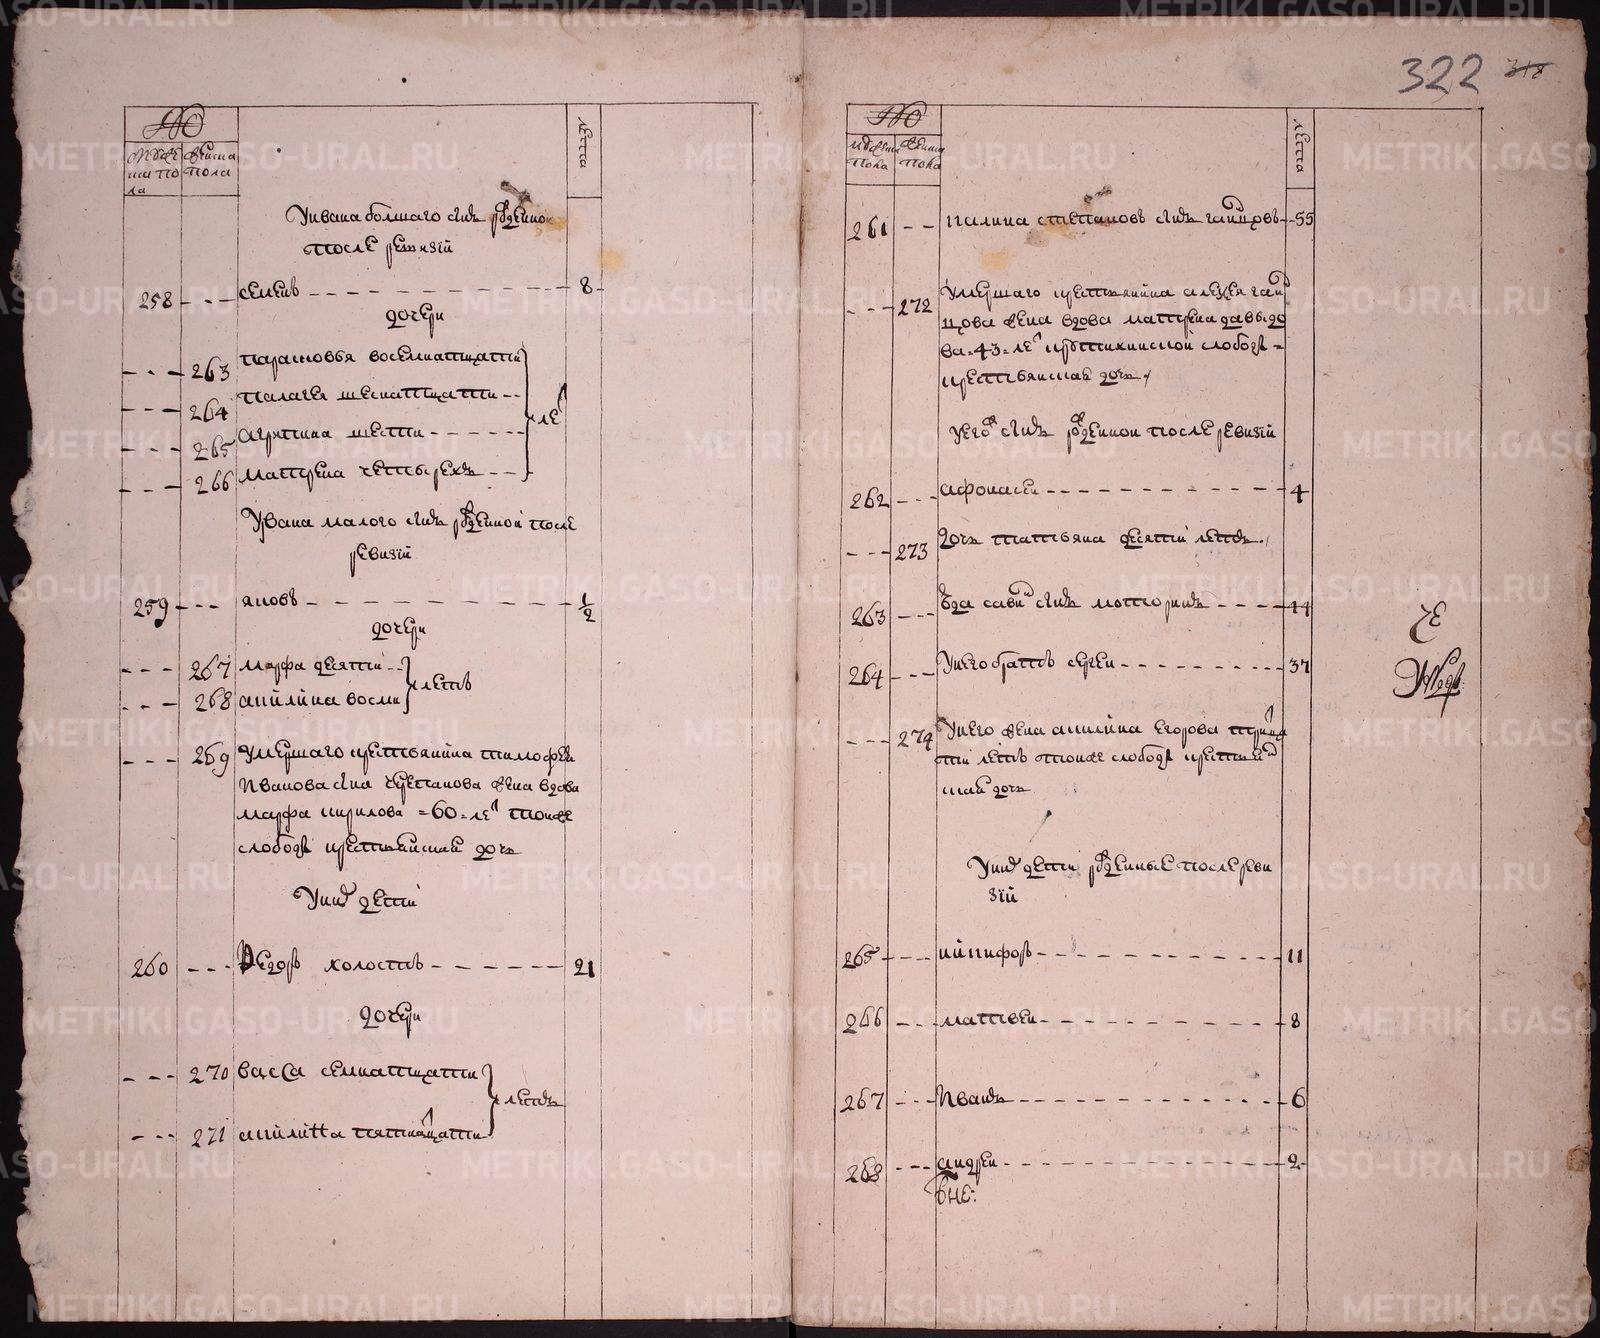 322 318
№
мужеска пола
женска пола
лета
Уивана болшаго сынъ рожденной
после ревизiи
258 семенъ 8
дочери
263 парасковья восемнатцати
264 палагея шеснатцати
265 агрипина шести
266 матрена четырехъ
лѣ
Уивана малого сынъ рожденной после
ревизiи
259 яковъ 1/2
дочери
267 марфа десяти
268 акилина восми
летъ
269 умершаго крестьянина тимофея
иванова сна черепанова жена вдова
марфа кирилова =60= ле тоиже
слободы крестьянская дочь
Уних дети
260 Федоръ холостъ 21
дочери
270 васса семнатцати
271 акилина пятнатцати
летъ
№
мужеска пола
женска пола
лета
261 степановъ сынъ 55
272 Умершаго крестьянина алексея
жена вдова матрена давыдо
ва =43= ле слободы =
крестьянская дочь
Унего сынъ рожденной после ревизiи
262 афонасеи 4
273 дочь татьяна десяти летъ
263 савин сынъ 44
264 Унего братъ сергеи 37
274 Унего жена акилина егорова
ти летъ тоиже слободы крестьян
ская дочь
Уних дети рожденные после реви
зiи
265 никифоръ 11
266 матвеи 8
267 Иванъ 6
268 андреи 2
вне: